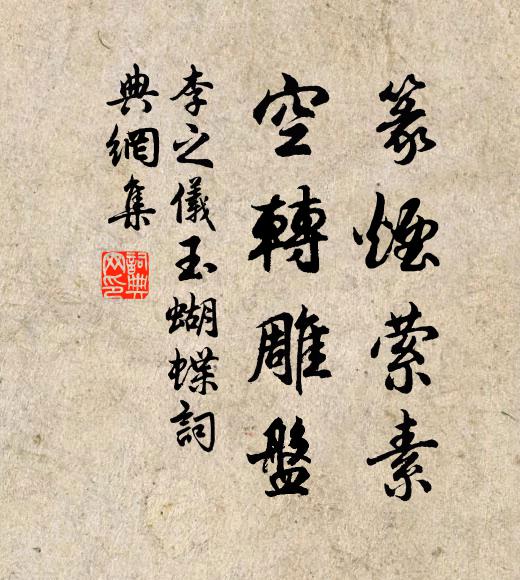 篆煙縈素
空轉雕盤
李之儀玉蝴蝶詞
典網集
詞典網印